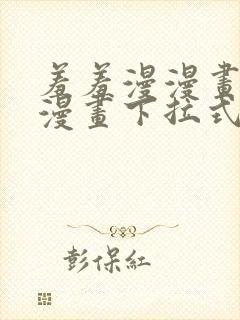 羞羞漫漫畫
漫畫下拉式
彭保紅